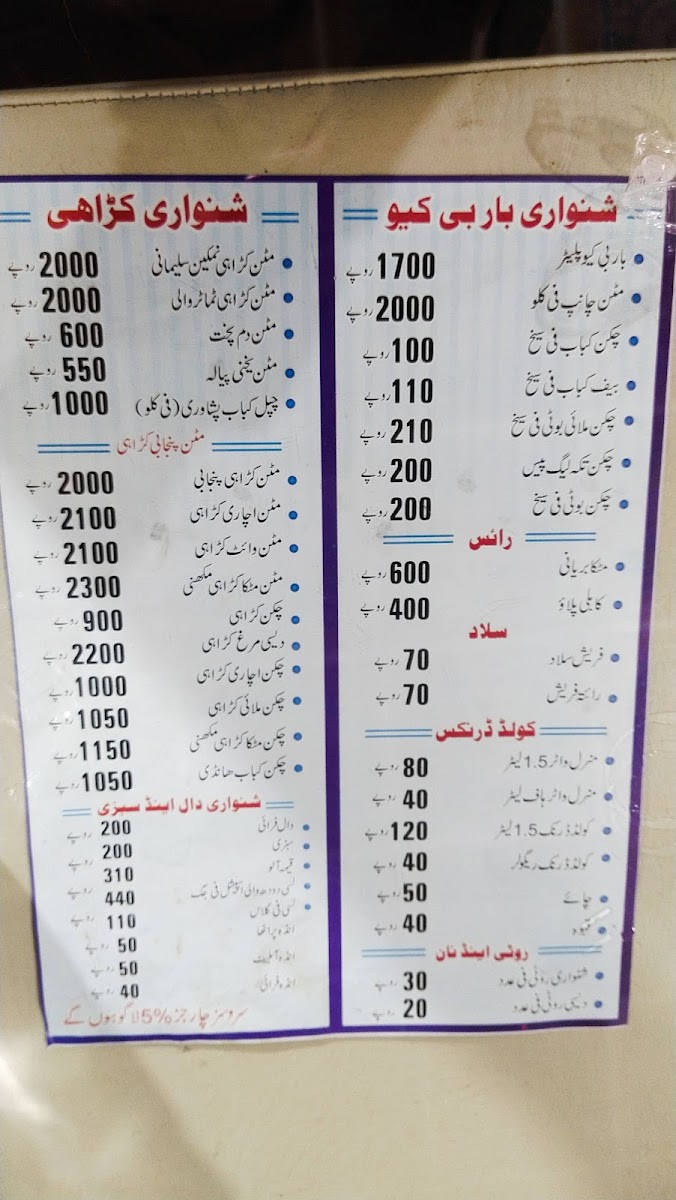 شنواری بار بی کیو
بار بی کیو پلیٹر 1700 روپے
مٹن چانپ فی کلو 2000 روپے
چکن کباب فی سیخ 100 روپے
بیف کباب فی سیخ 110 روپے
چکن ملائی بوٹی فی سیخ 210 روپے
چکن تکہ لیگ پیس 200 روپے
چکن بوٹی فی سیخ 200 روپے
رائس
مٹکا بریانی 600 روپے
کابلی پلاؤ 400 روپے
سلاد
فریش سلاد 70 روپے
رائتہ فریش 70 روپے
کولڈ ڈرنکس
منرل واٹر 1.5 لیٹر 80 روپے
منرل واٹر ہاف لیٹر 40 روپے
کولڈ ڈرنک 1.5 لیٹر 120 روپے
کولڈ ڈرنک ریگولر 40 روپے
چائے 50 روپے
قہوہ 40 روپے
روٹی اینڈ نان
شنواری روٹی فی عدد 30 روپے
دیسی روٹی فی عدد 20 روپے
شنواری کڑاھی
مٹن کڑاہی نمکین سلیمانی 2000 روپے
مٹن کڑاہی ٹماٹر والی 2000 روپے
مٹن دم پخت 600 روپے
مٹن یخنی پیالہ 550 روپے
چپل کباب پشاوری (فی کلو) 1000 روپے
مٹن پنجابی کڑاہی
مٹن کڑاہی پنجابی 2000 روپے
مٹن اچاری کڑاہی 2100 روپے
مٹن وائٹ کڑاہی 2100 روپے
مٹن مٹکا کڑاہی مکھنی 2300 روپے
چکن کڑاہی 900 روپے
دیسی مرغ کڑاہی 2200 روپے
چکن اچاری کڑاہی 1000 روپے
چکن ملائی کڑاہی 1050 روپے
چکن مٹکا کڑاہی مکھنی 1150 روپے
چکن کباب ھانڈی 1050 روپے
شنواری دال اینڈ سبزی
دال فرائی 200 روپے
سبزی 200 روپے
قیمہ آلو 310 روپے
لسی دودھ والی اسپیشل فی جگ 440 روپے
لسی فی گلاس 110 روپے
انڈہ پراٹھا 50 روپے
انڈہ آملیٹ 50 روپے
انڈہ فرائی 40 روپے
سروسز چارجز 5% لاگو ہوں گے